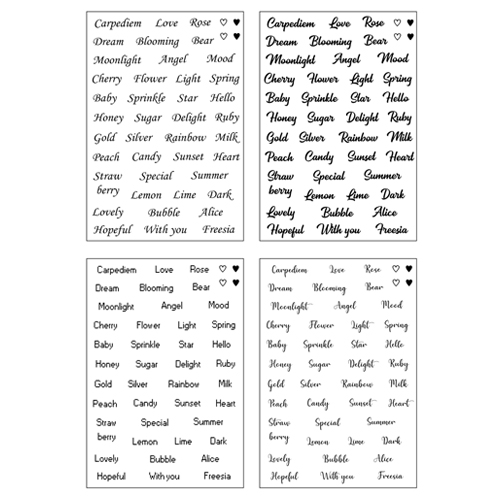 Carpediem Love Rose ♡ ♥
Dream Blooming Bear ♡ ♥
Moonlight Angel Mood
Cherry Flower Light Spring
Baby Sprinkle Star Hello
Honey Sugar Delight Ruby
Gold Silver Rainbow Milk
Peach Candy Sunset Heart
Straw Special Summer
berry Lemon Lime Dark
Lovely Bubble Alice
Hopeful With you Freesia
Carpediem Love Rose ♡ ♥
Dream Blooming Bear ♡ ♥
Moonlight Angel Mood
Cherry Flower Light Spring
Baby Sprinkle Star Hello
Honey Sugar Delight Ruby
Gold Silver Rainbow Milk
Peach Candy Sunset Heart
Straw Special Summer
berry Lemon Lime Dark
Lovely Bubble Alice
Hopeful With you Freesia
Carpediem Love Rose ♡ ♥
Dream Blooming Bear ♡ ♥
Moonlight Angel Mood
Cherry Flower Light Spring
Baby Sprinkle Star Hello
Honey Sugar Delight Ruby
Gold Silver Rainbow Milk
Peach Candy Sunset Heart
Straw Special Summer
berry Lemon Lime Dark
Lovely Bubble Alice
Hopeful With you Freesia
Carpediem Love Rose ♡ ♥
Dream Blooming Bear ♡ ♥
Moonlight Angel Mood
Cherry Flower Light Spring
Baby Sprinkle Star Hello
Honey Sugar Delight Ruby
Gold Silver Rainbow Milk
Peach Candy Sunset Heart
Straw Special Summer
berry Lemon Lime Dark
Lovely Bubble Alice
Hopeful With you Freesia